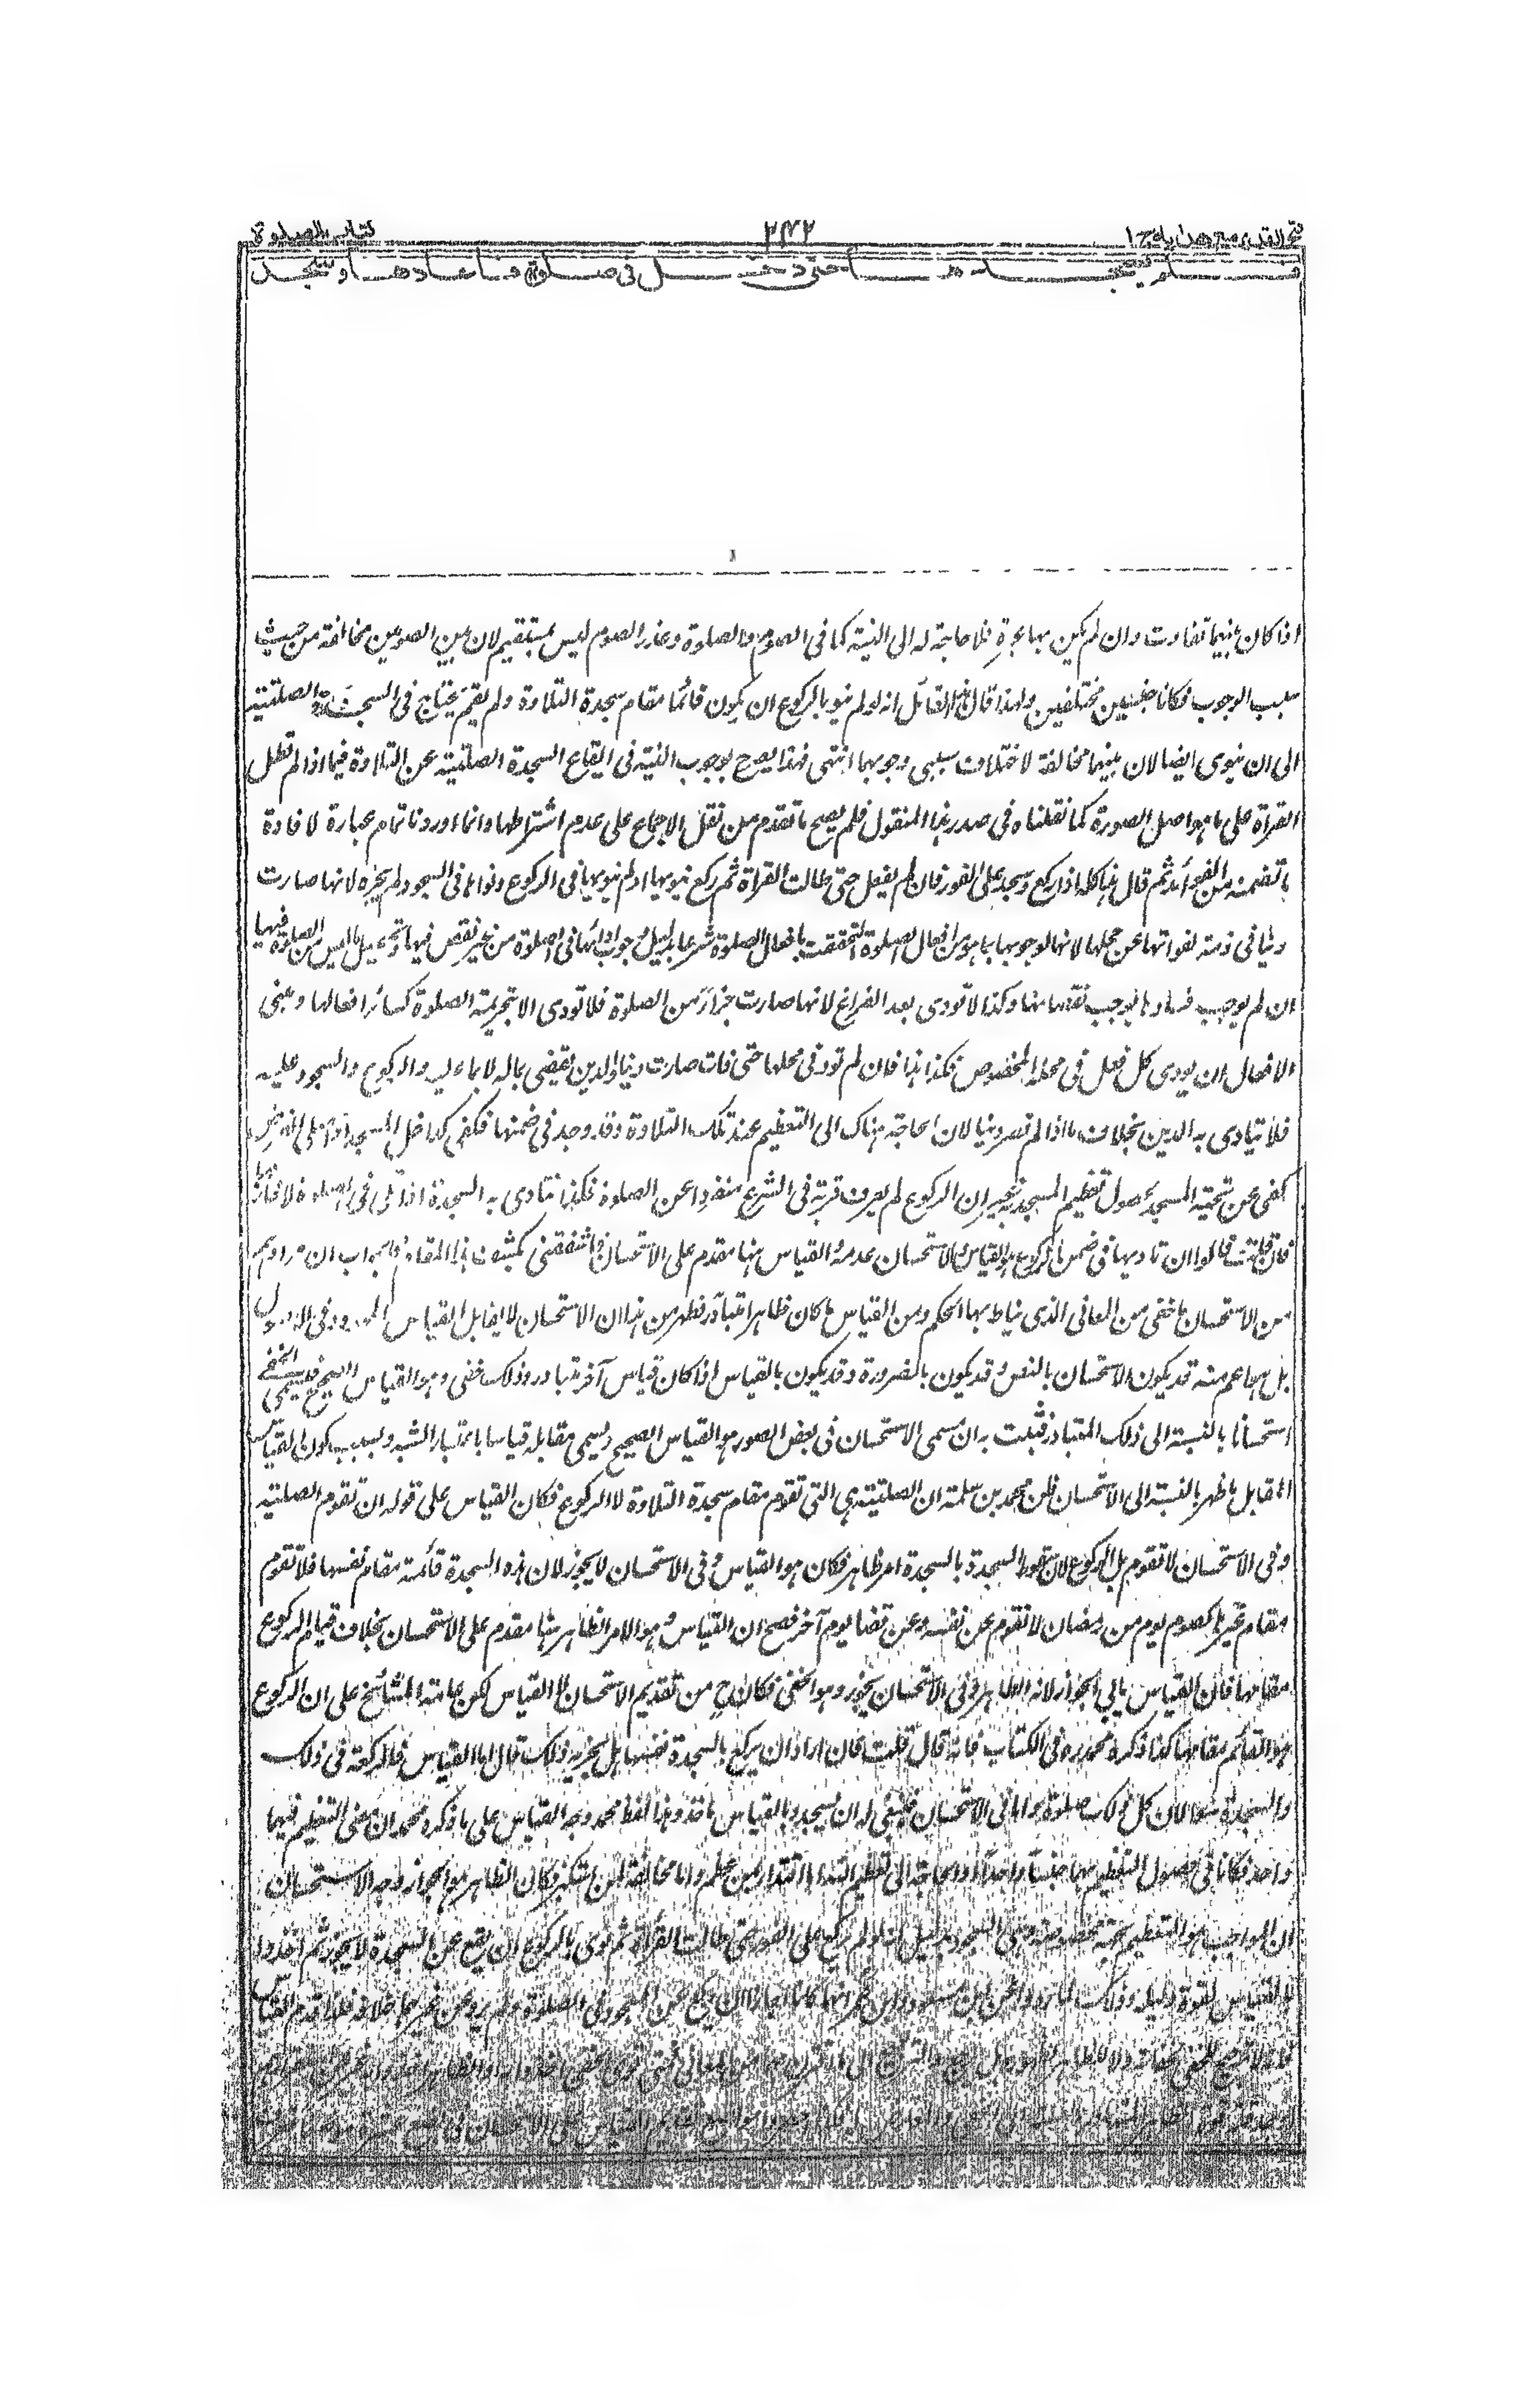 فتح القدير مع هدايه ج ١
٢٧٢
كتاب الصلوة
فلم يسجدها حتى دخل في صلوة فاعادها وسجد
اذا كان بينهما تفاوت وان لم يكن بها عبرة فلا حاجة له الى النية كما فى الصوم والصلوة وعذر الصوم ليس بمستقيم لان بين الصومين مخالفة من حيث
سبب الوجوب فكانا جنسين مختلفين ولهذا قال هذا القائل انه لو لم ينو بالركوع ان يكون قائما مقام سجدة التلاوة ولم يقم يحتاج فى السجدة الصلتية
الى ان ينوى ايضا لان بينهما مخالفة لاختلاف سببى وجوبهما انتهى فهذا يصرح بوجوب النية فى ايقاع السجدة الصلتية عن التلاوة فيما اذا لم تطل
القراة على ما هو اصل الصورة كما نقلناه فى صدر هذا المنقول فلم يصح ما تقدم من نقل الاجماع على عدم اشتراطها وانما اوردنا تمام عبارة لافادة
ما تضمنه من الفوائد ثم قال هذا كله اذا ركع وسجد على الفور فان لم يفعل حتى طالت القراة ثم ركع ينويها او لم ينويها فى الركوع ونواها فى السجود لم يجزه لانها صارت
دينا فى ذمته لفواتها عن محلها لانها لوجوبها بما هو من افعال الصلوة التحقت بافعال الصلوة شرعا بدليل وجوب ادائها فى الصلوة من غير نقص فيها وتحصيل ما ليس من الصلوة فيها
ان لم يوجب فسادها يوجب نقصها وكذا لا تودى بعد الفراغ لانها صارت جزأ من الصلوة فلا تودى الا بتحريمة الصلوة كسائر افعالها ومبنى
الافعال ان يودى كل فعل فى محله المخصوص فكذا هذا فان لم تود فى محلها حتى فات صارت دينا والدين يقضى بماله لا بما عليه والركوع والسجود عليه
فلا يتادى به الدين بخلاف ما اذا لم تصر دينا لان الحاجة هناك الى التعظيم عند تلك التلاوة وقد وجد فى ضمنها فكفى كداخل المسجد اذا صلى الفرض
كفى عن تحية المسجد لحصول تعظيم المسجد غير ان الركوع لم يعرف قربة فى الشرع منفردا عن الصلوة فلهذا تتادى به السجدة اذا تلى فى الصلوة لا خارجها
فان قلت قالوا ان تاديها فى ضمن الركوع هو القياس والاستحسان عدمه والقياس هنا مقدم على الاستحسان فاستفتنى كشف هذا المقام فالجواب ان مرادهم
من الاستحسان ما خفى من المعانى الذى يناط بها الحكم ومن القياس ما كان ظاهرا متبادرا فظهر من هذا ان الاستحسان لا يقابل القياس المحدود فى الاصول
بل هو اعم منه قد يكون الاستحسان بالنص وقد يكون بالضرورة وقد يكون بالقياس اذا كان قياس آخر متبادر وذلك خفى وهو القياس الصحيح فيسمى الخفى
استحسانا بالنسبة الى ذلك المتبادر فثبت به ان مسمى الاستحسان فى بعض الصور هو القياس الصحيح ويسمى مقابله قياسا باعتبار الشبه وبسبب كون القياس
المقابل ما ظهر بالنسبة الى الاستحسان ظن محمد بن سلمة ان الصلتية هى التى تقوم مقام سجدة التلاوة لا الركوع فكان القياس على قوله ان تقوم الصلتية
وفى الاستحسان لا تقوم بل الركوع لان سقوط السجدة بالسجدة امر ظاهر فكان هو القياس وفى الاستحسان لا يجوز لان هذه السجدة قائمة مقام نفسها فلا تقوم
مقام غيرها كصوم يوم من رمضان لا تقوم عن نفسه وعن قضا يوم آخر فصح ان القياس وهو الامر الظاهر هنا مقدم على الاستحسان بخلاف قيام الركوع
مقامها فان القياس يابى الجواز لانه الظاهر وفى الاستحسان يجوز وهو الخفى فكان ح من تقديم الاستحسان لا القياس لكن عامة المشائخ على ان الركوع
هو القائم مقامها كذا ذكره محمد ره فى الكتاب فانه قال قلت فان اراد ان يركع بالسجدة نفسها هل يجزيه ذلك قال اما القياس فالركعة فى ذلك
والسجدة سواء لان كل ذلك صلوة واما فى الاستحسان فينبغى له ان يسجد وبالقياس ناخذ وهذا لفظ محمد وجه القياس على ما ذكره محمد ان معنى التعظيم فيهما
واحد فكانا فى حصول التعظيم بهما جنسا واحدا والحاجة الى تعظيم الله اما اقتداء بمن عظم واما مخالفة لمن استكبر فكان الظاهر هو الجواز وجه الاستحسان
ان الواجب هو التعظيم بجهة مخصوصة وهى السجود بدليل انه لو لم يركع على الفور حتى طالت القراة ثم نوى بالركوع ان يقع عن السجدة لا يجوز ثم اخذوا
بالقياس لقوة دليله وذلك لما روى عن ابن مسعود وابن عمر انهما كانا اجازا ان يركع عن السجود فى الصلوة ولم يرو عن غيرهما خلافه فلذا قدم القياس